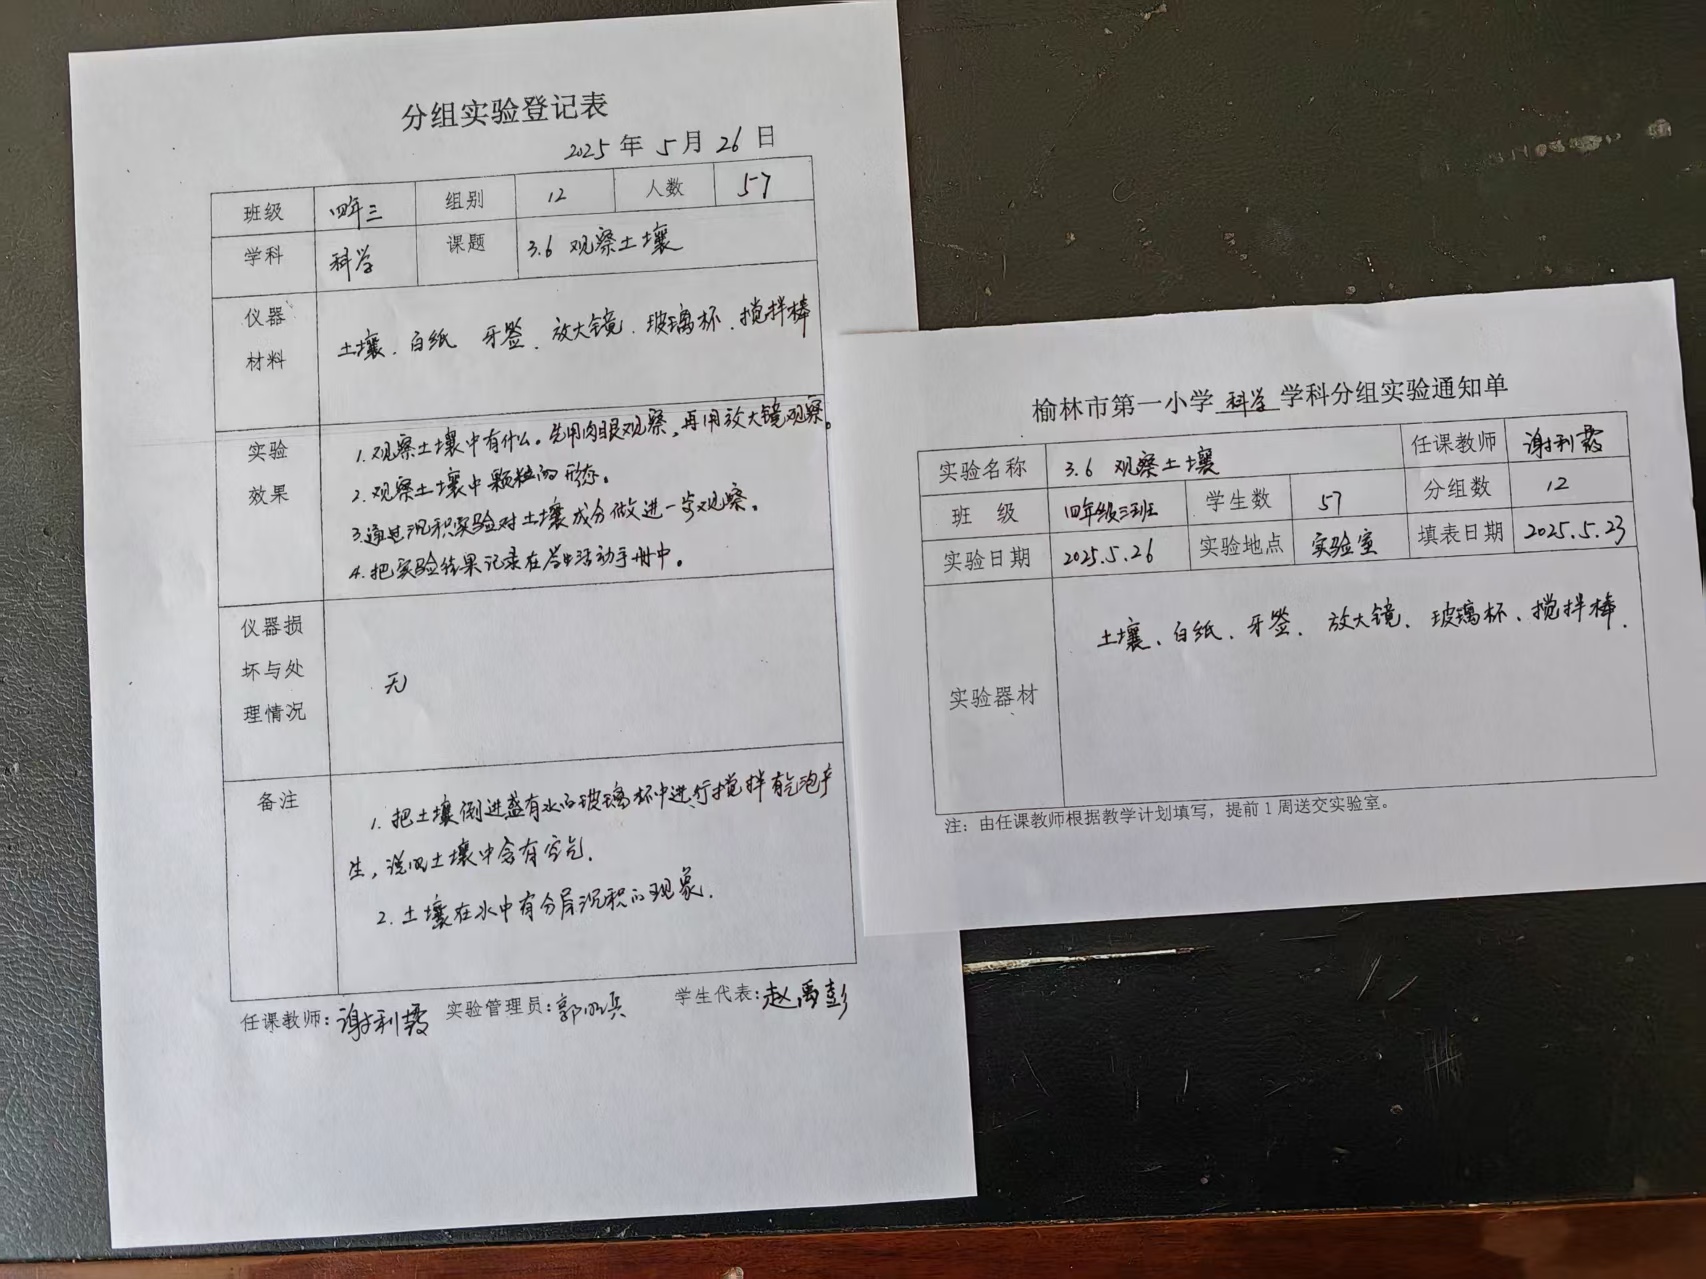 分组实验登记表
2025 年 5 月 26 日
班级 四年三 组别 12 人数 57
学科 科学 课题 3.6 观察土壤
仪器
材料
土壤、白纸 牙签、放大镜、玻璃杯、搅拌棒
实验
效果
1.观察土壤中有什么。先用肉眼观察,再用放大镜观察。
2.观察土壤中颗粒的形态。
3.通过沉积实验对土壤成分做进一步观察。
4.把实验结果记录在学生活动手册中。
仪器损
坏与处
理情况
无
备注
1.把土壤倒进盛有水的玻璃杯中进行搅拌有气泡产
生,说明土壤中含有空气.
2.土壤在水中有分层沉积的现象.
任课教师:谢利霞 实验管理员:郭明兵 学生代表:赵禹彭
榆林市第一小学 科学 学科分组实验通知单
实验名称 3.6 观察土壤 任课教师 谢利霞
班 级 四年级三班 学生数 57 分组数 12
实验日期 2025.5.26 实验地点 实验室 填表日期 2025.5.23
实验器材
土壤、白纸、牙签、放大镜、玻璃杯、搅拌棒.
注:由任课教师根据教学计划填写,提前 1 周送交实验室。